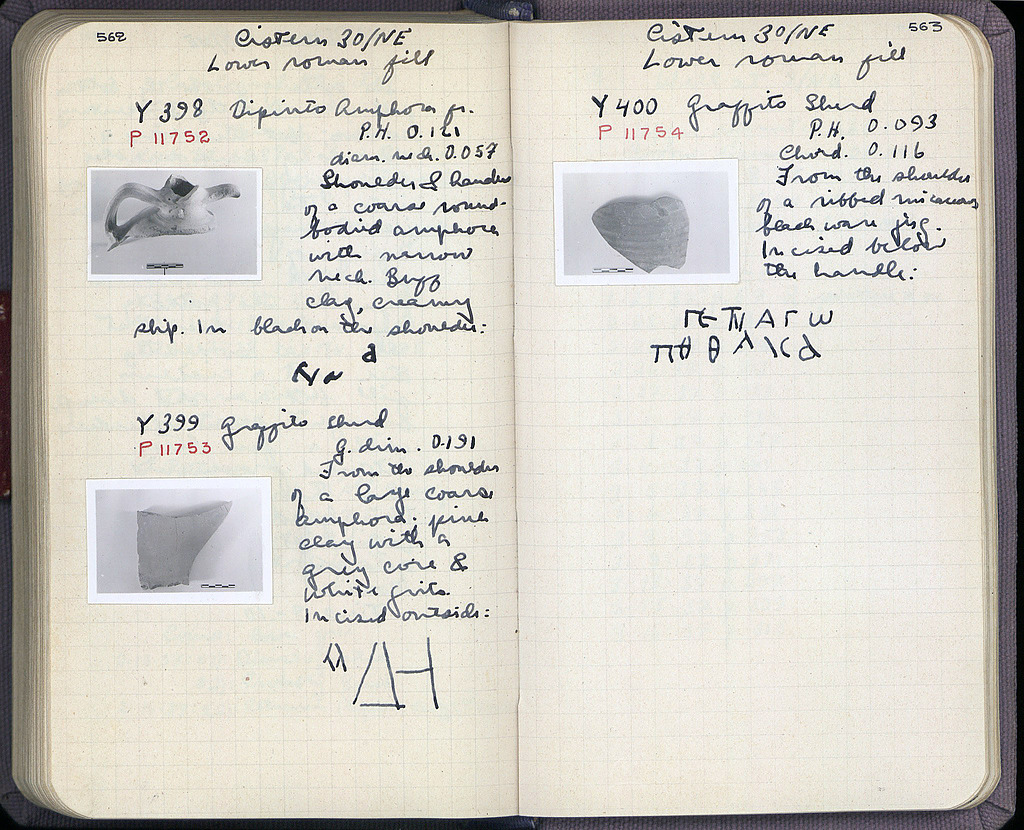 562
Cistern 30/NE
Lower roman fill
Y 398 Dipinto Amphora fr.
P 11752
P.H. 0.121
diam. neck. 0.057
Shoulder & handles
of a coarse round-
bodied amphora
with narrow
neck. Buff
clay, creamy
slip. In black on the shoulder:
Y 399 Graffito Sherd
P 11753
G. dim. 0.191
From the shoulder
of a large coarse
amphora; pink
clay with a
grey core &
white grits.
Incised outside:
ΔΗ
563
Cistern 30/NE
Lower roman fill
Y 400 Graffito Sherd
P 11754
P.H. 0.093
Chord. 0.116
From the shoulder
of a ribbed micaceous
black ware jug.
Incised below
the handle: